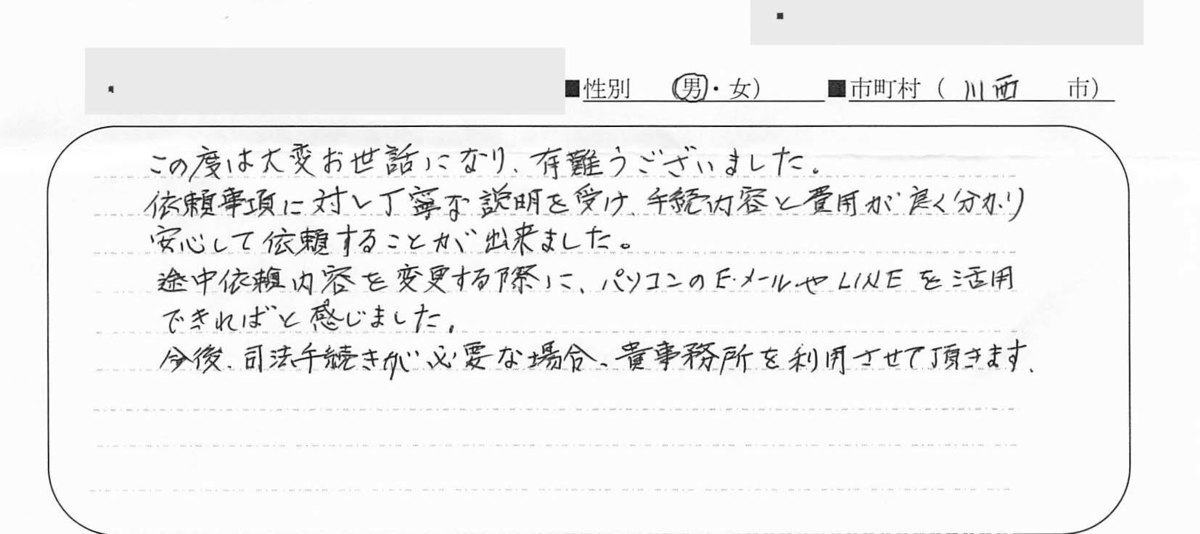 ■性別 (男・女) ■市町村 ( 川西 市)
この度は大変お世話になり、有難うございました。
依頼事項に対し丁寧な説明を受け、手続内容と費用が良く分かり
安心して依頼することが出来ました。
途中依頼内容を変更する際に、パソコンのE-メールやLINEを活用
できればと感じました。
今後、司法手続きが必要な場合、貴事務所を利用させて頂きます。